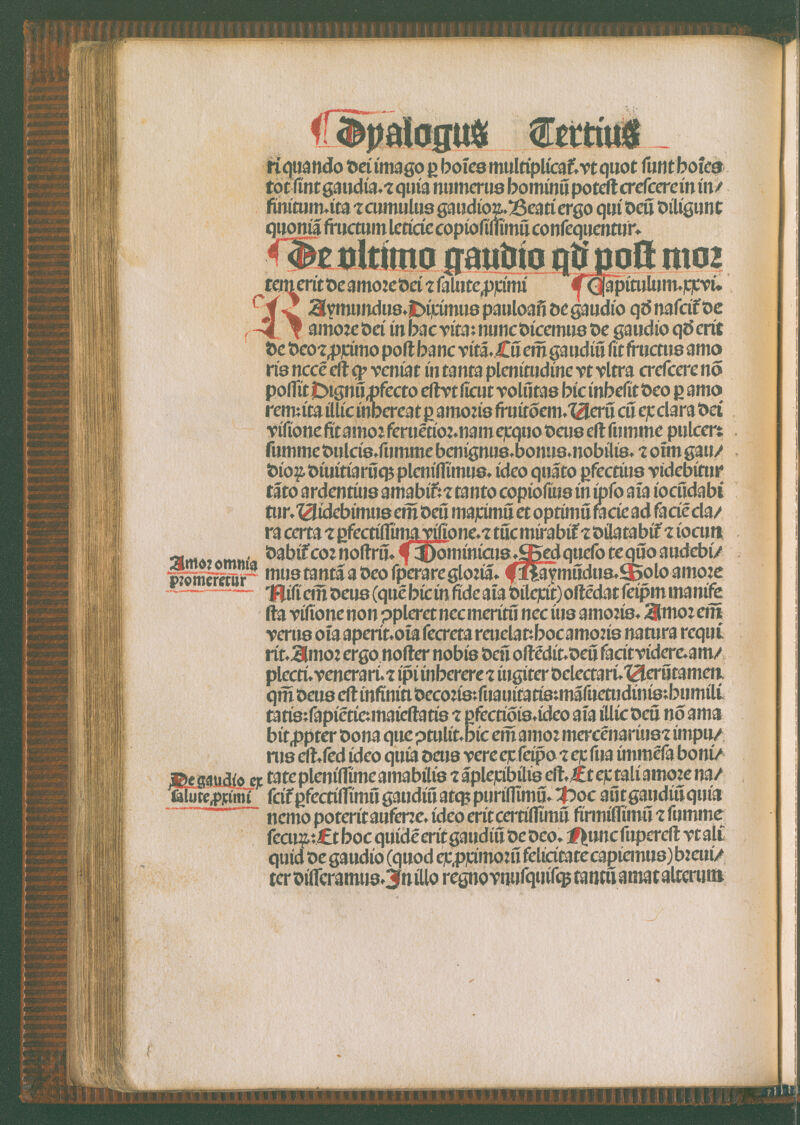 Dyalogus Tertius
ri quando dei imago ꝑ hoīes multiplicat᷑. vt quot sunt hoīes
tot sint gaudia. ⁊ quia numerus hominū potest crescere in in⸗
finitum. ita ⁊ cumulus gaudioꝝ. Beati ergo qui deū diligunt
quoniā fructum leticie copiosissimū consequentur.
¶ De vltimo gaudio qđ post mor
tem erit de amore dei ⁊ salute ꝓximi ¶ Capitulum. xxvi.
RAymundus. Diximus pauloañ de gaudio qđ nascit᷑ de
amore dei in hac vita: nunc dicemus de gaudio qđ erit
de deo ⁊ ꝓximo post hanc vitā. Cū em̄ gaudiū sit fructus amo
ris nccē est ꝙ veniat in tanta plenitudine vt vltra crescere nō
possit Dignū ꝓfecto est vt sicut volūtas hic inhesit deo ꝑ amo
rem: ita illic inhereat ꝑ amoris fruitōem. Uerū cū ex clara dei
visione fit amor feruētior. nam exquo deus est summe pulcer:
summe dulcis. summe benignus. bonus. nobilis. ⁊ oīm gau⸗
dioꝝ diuitiarūqꝫ plenissimus. ideo quāto ꝑfectius videbitur
tāto ardentius amabit᷑: ⁊ tanto copiosius in ipso aīa iocūdabi
tur. Uidebimus em̄ deū maximū et optimū facie ad faciē cla⸗
ra certa ⁊ ꝑfectissima visione. ⁊ tūc mirabit᷑ ⁊ dilatabit᷑ ⁊ iocun
dabit᷑ cor nostrū. ¶ Dominicus. Sed queso te qūo audebi⸗
Amor omnia
promeretur
mus tantā a deo sperare gloriā. ¶ Raymūdus. Solo amore
Nisi em̄ deus (quē hic in fide aīa dilexit) ostēdat seip̄m manife
sta visione non ꝯpleret nec meritū nec ius amoris. Amor em̄
verus oīa aperit. oīa secreta reuelat: hoc amoris natura requi
rit. Amor ergo noster nobis deū ostēdit. deū facit videre. am⸗
plecti. venerari. ⁊ ip̄i inherere ⁊ iugiter delectari. Uerūtamen
qm̄ deus est infiniti decoris: suauitatis: māsuetudinis: humili
tatis: sapiētie: maiestatis ⁊ ꝑfectiōis. ideo aīa illic deū nō ama
bit ꝓpter dona que ꝯtulit. hic em̄ amor mercēnarius ⁊ impu⸗
rus est. sed ideo quia deus vere ex seip̄o ⁊ ex sua immēsa boni⸗
De gaudio ex
salute ꝓximi
tate plenissime amabilis ⁊ āplexibilis est. Et ex tali amore na⸗
scit᷑ ꝑfectissimū gaudiū atqꝫ purissimū. Hoc aūt gaudiū quia
nemo poterit auferre. ideo erit certissimū firmissimū ⁊ summe
securꝫ: Et hoc quidē erit gaudiū de deo. Nunc superest vt ali
quid de gaudio (quod ex ꝓximorū felicitate capiemus) breui⸗
ter disseramus. In illo regno vnusquisqꝫ tantū amat alterum